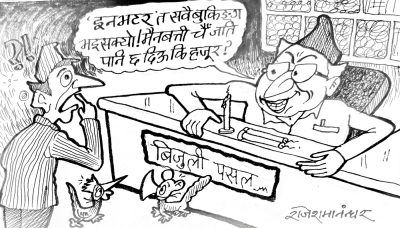 'इनभटर' त सबै बुकिङ
भइसक्यो! मैनबत्ती चैं जति
पानि छ दिऊ कि हजूर?
?!
बिजुली पसल...
राजेशमानन्धर